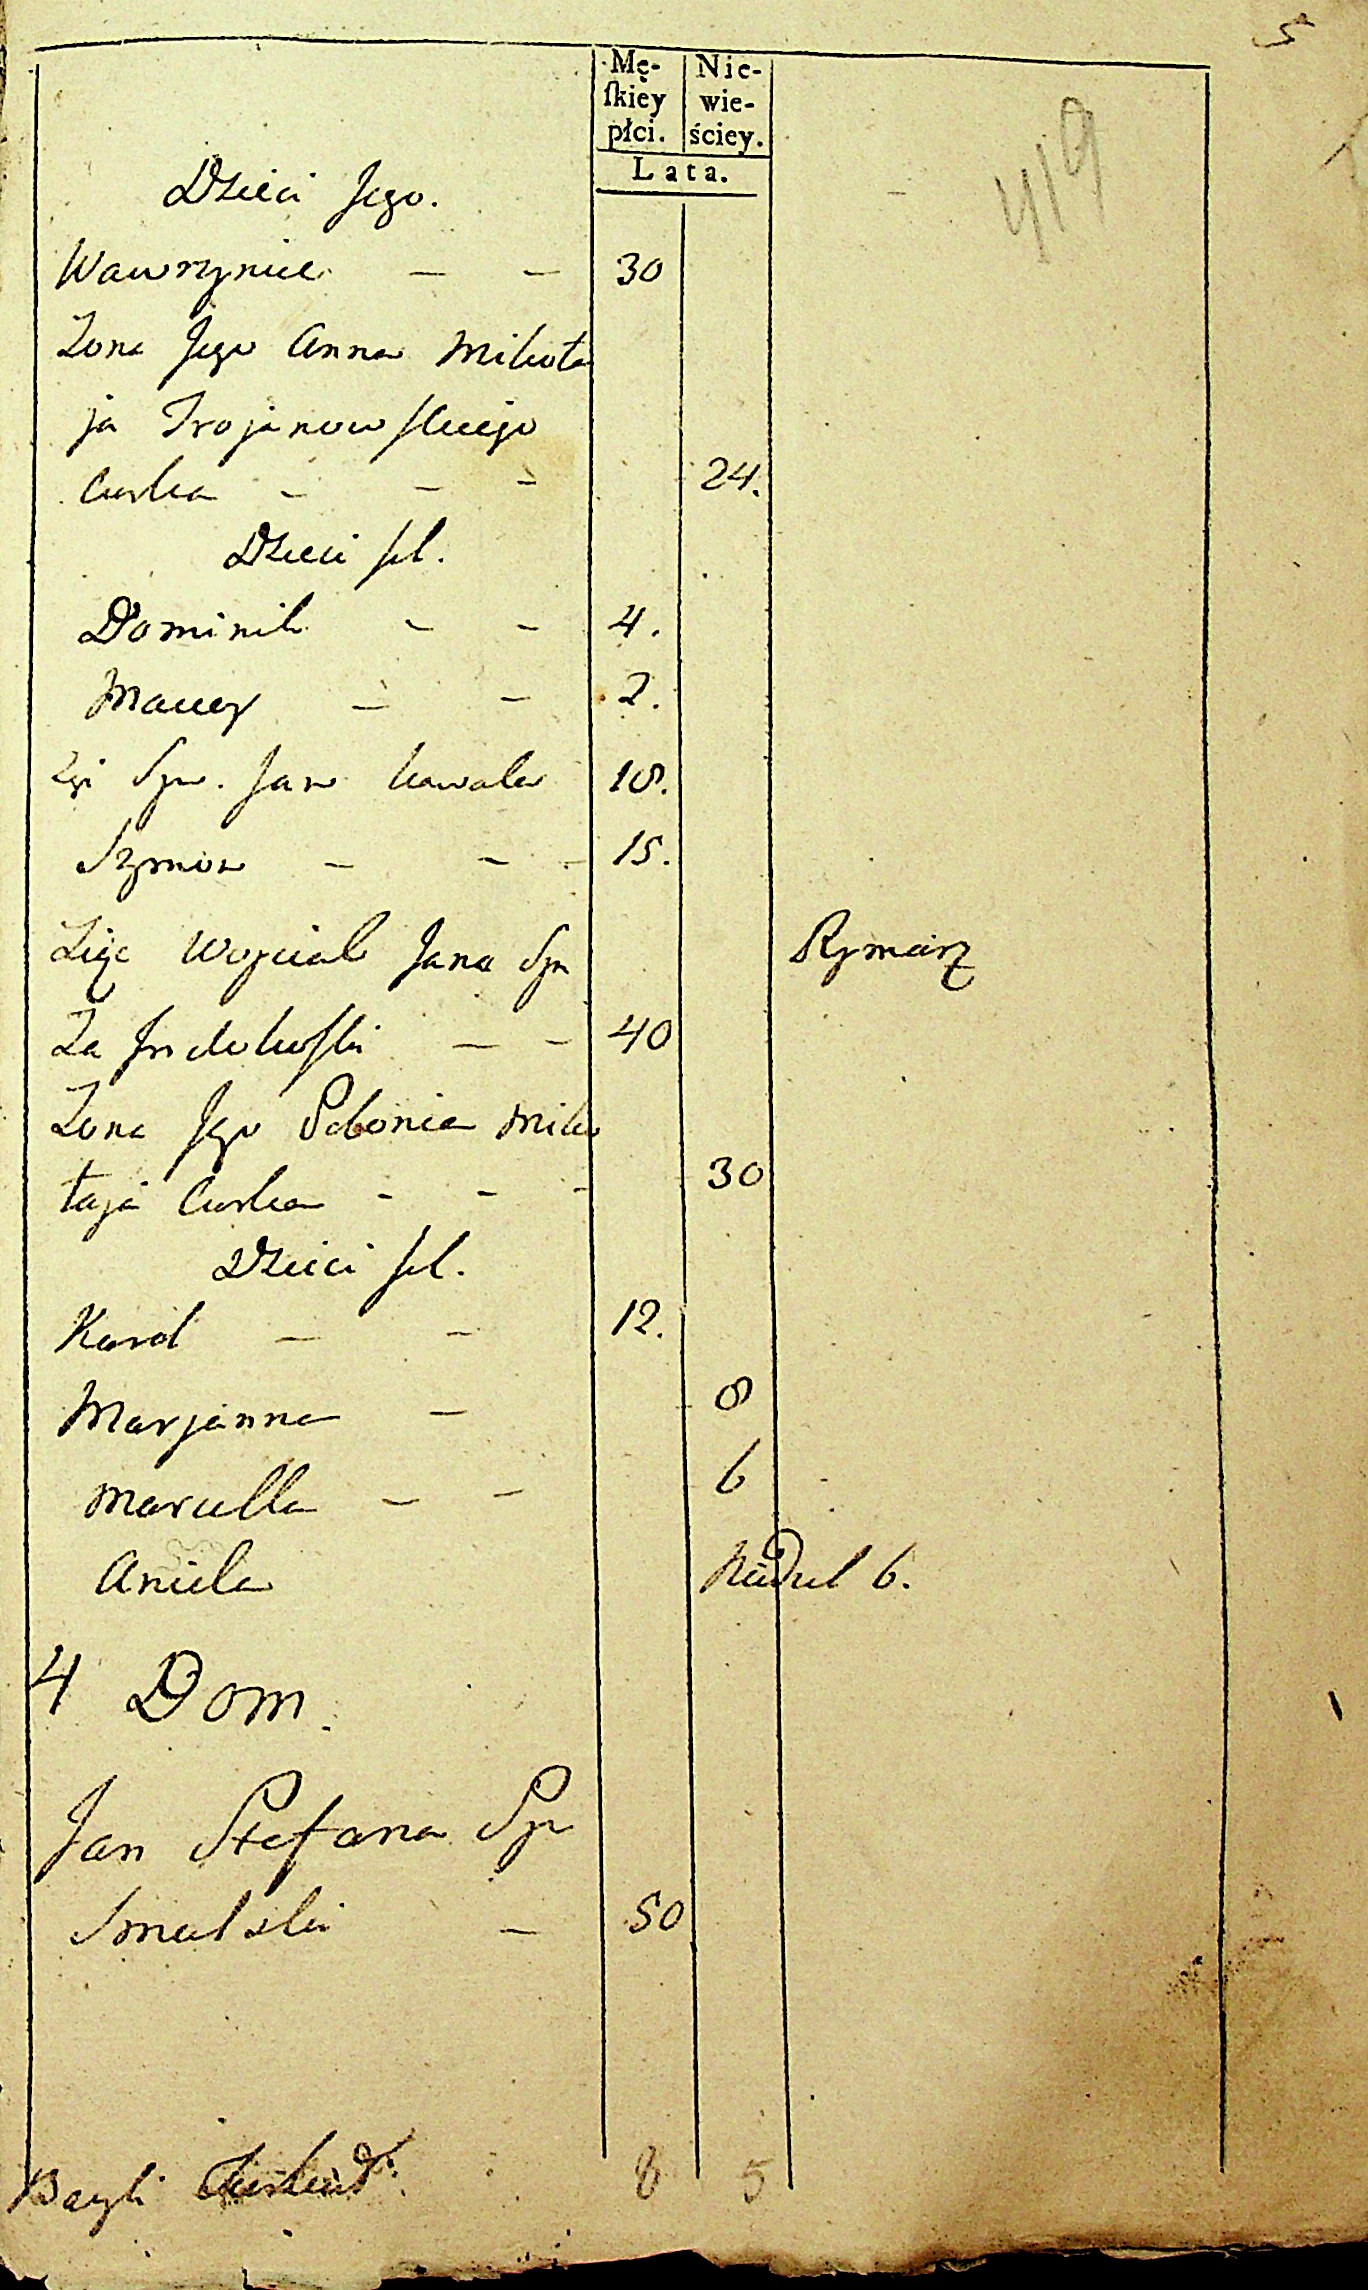 5
419
Mę-
skiey
płci.
Nie-
wie-
ściey.
Lata.
Dzieci Jego.
Wawrzyniec — — 30
Żona Jego Anna Mikoła
ja Trojanowskiego
Curka - - - 24.
Dzieci ich.
Dominik - - 4.
Maciey - - 2.
2gi Syn. Jan kawaler 18.
Szymon - - - 15.
Zięć Woyciech Jana Syn Rymarz
— — 40
Żona Jego Polonia Miko
łaja Curka - - - 30
Dzieci ich.
Karol — - 12.
Marjanna — 8
Marcella — - 6
Aniela Niedziel 6.
4 Dom.
Jan Stefana Syn
Smulski — 50
8 5